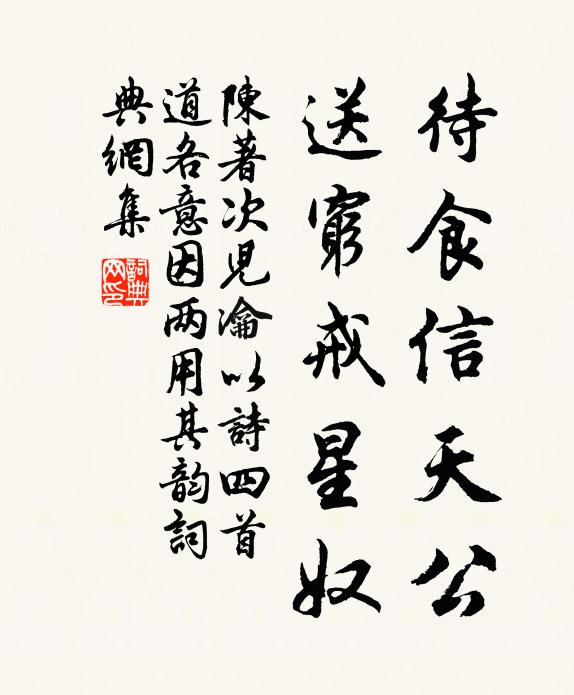 待食信天公
送窮戒星奴
陳著次児瀹以詩四首
道各意因两用其韵詞
典網集
詞典网印